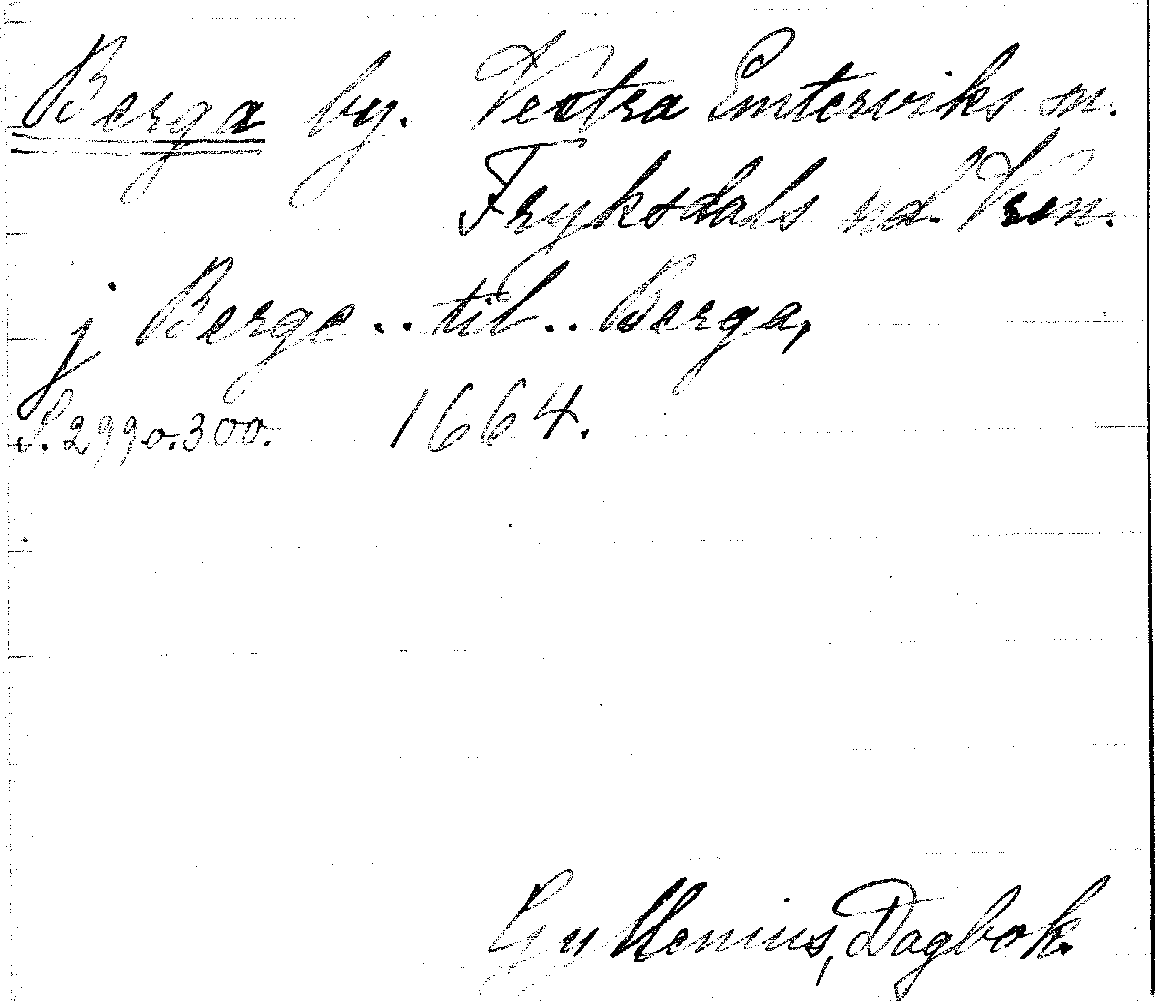 Berga by. Vestra Emterviks sn.
Fryksdals hd. Vrm.
j Berge .. til .. Berga,
S. 299 o. 300. 1664.
Gyllenius, Dagbok.